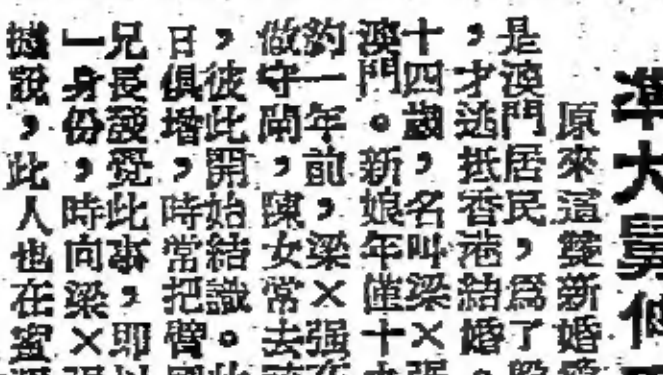 準大舅
原來這雙新婚
是澳門居民，爲了
，才逃抵香港結婚。
十四歲，名叫梁×强
澳門。新娘年僅十
約一年前，梁×强在
做守閘，陳女常去
，彼此開始結識。此
日俱增，時常把臂
兄長發覺此事，即以
」身份，時向梁×强
據說，此人也在蜜